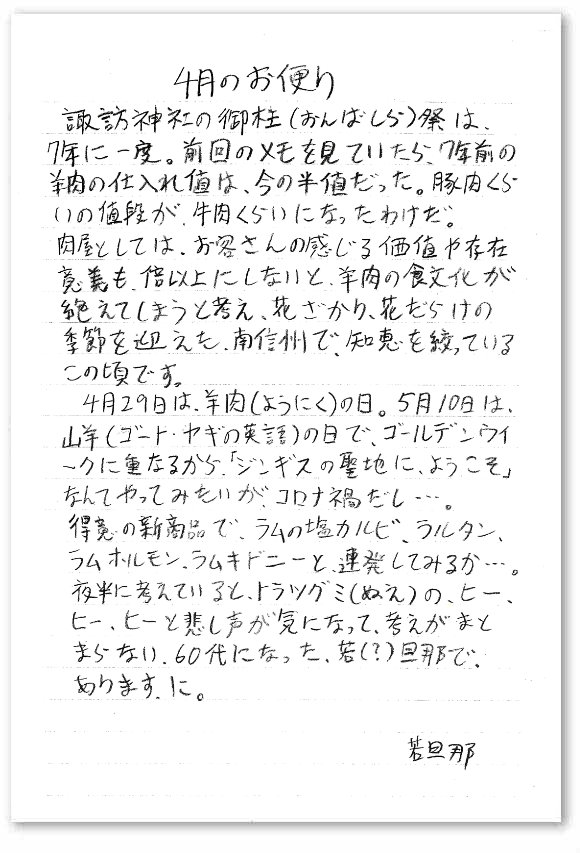 4月のお便り
諏訪神社の御柱(おんばしら)祭は、
7年に一度。前回のメモを見ていたら、7年前の
羊肉の仕入れ値は、今の半値だった。豚肉くら
いの値段が、牛肉くらいになったわけだ。
肉屋としては、お客さんの感じる価値や存在
意義も、倍以上にしないと、羊肉の食文化が
絶えてしまうと考え、花ざかり、花だらけの
季節を迎えた、南信州で、知恵を絞っている
この頃です。
4月29日は、羊肉(ようにく)の日。5月10日は、
山羊(ゴート・ヤギの英語)の日で、ゴールデンウイ
ークに重なるから、「ジンギスの聖地に、ようこそ」
なんてやってみたいが、コロナ禍だし…。
得意の新商品で、ラムの塩カルビ、ラルタン、
ラムホルモン、ラムキドニーと、連発してみるか…。
夜半に考えていると、トラツグミ(ぬえ)の、ヒー、
ヒー、ヒーと悲し声が気になって、考えがまと
まらない、60代になった、若(?)旦那で、
あります、に。
若旦那